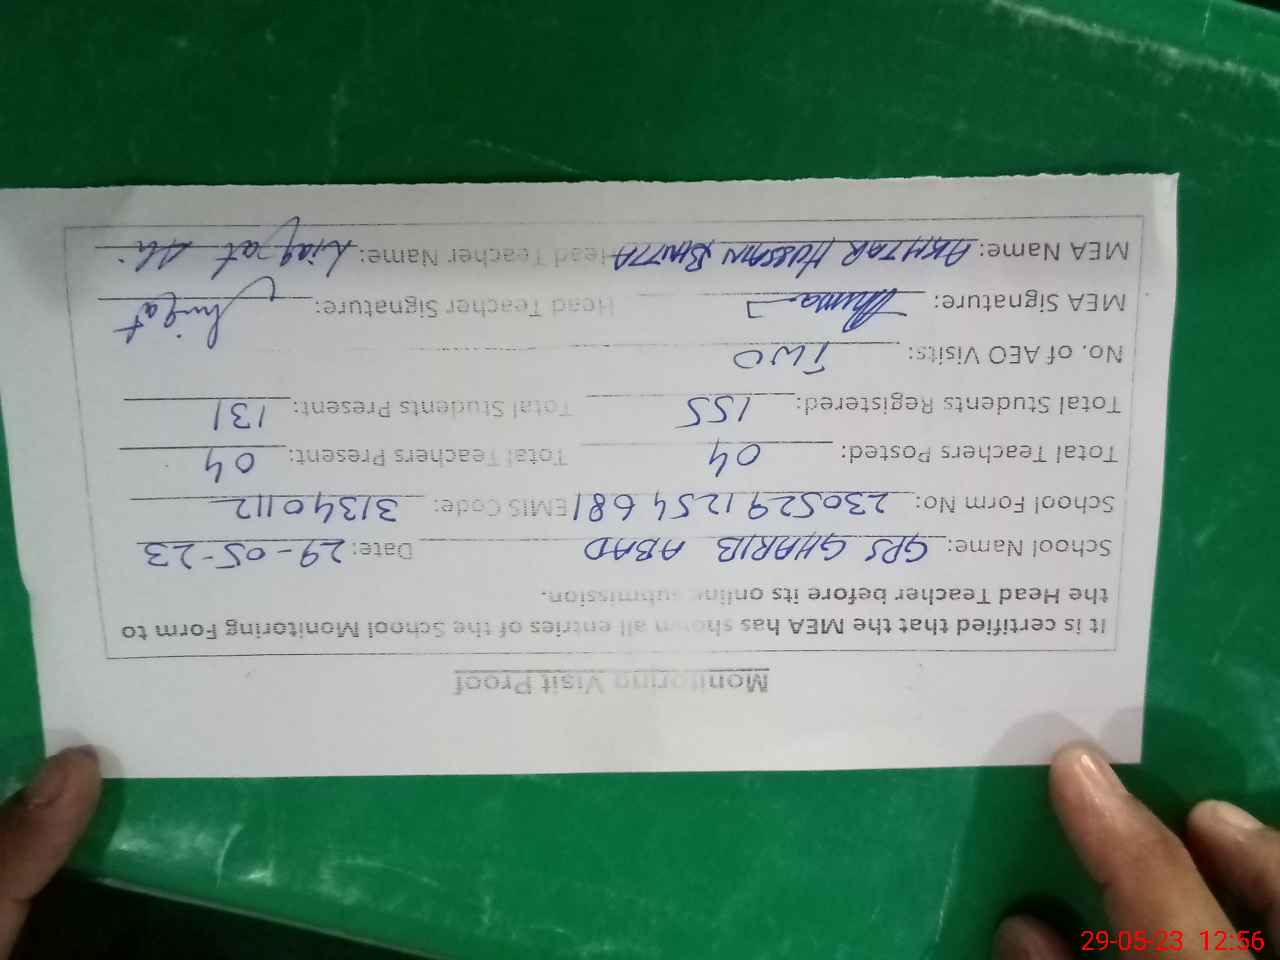 Monitoring Visit Proof
It is certified that the MEA has shown all entries of the School Monitoring Form to
the Head Teacher before its online submission.
School Name: GPS GHARIB ABAD Date: 29-05-23
School Form No: 2305291254681 EMIS Code: 31340112
Total Teachers Posted: 04 Total Teachers Present: 04
Total Students Registered: 155 Total Students Present: 131
No. of AEO Visits: TWO
MEA Signature: Head Teacher Signature: Liaqat
MEA Name: AKHTAR HUSSAIN BHUTTA Head Teacher Name: Liaqat Ali
29-05-23 12:56